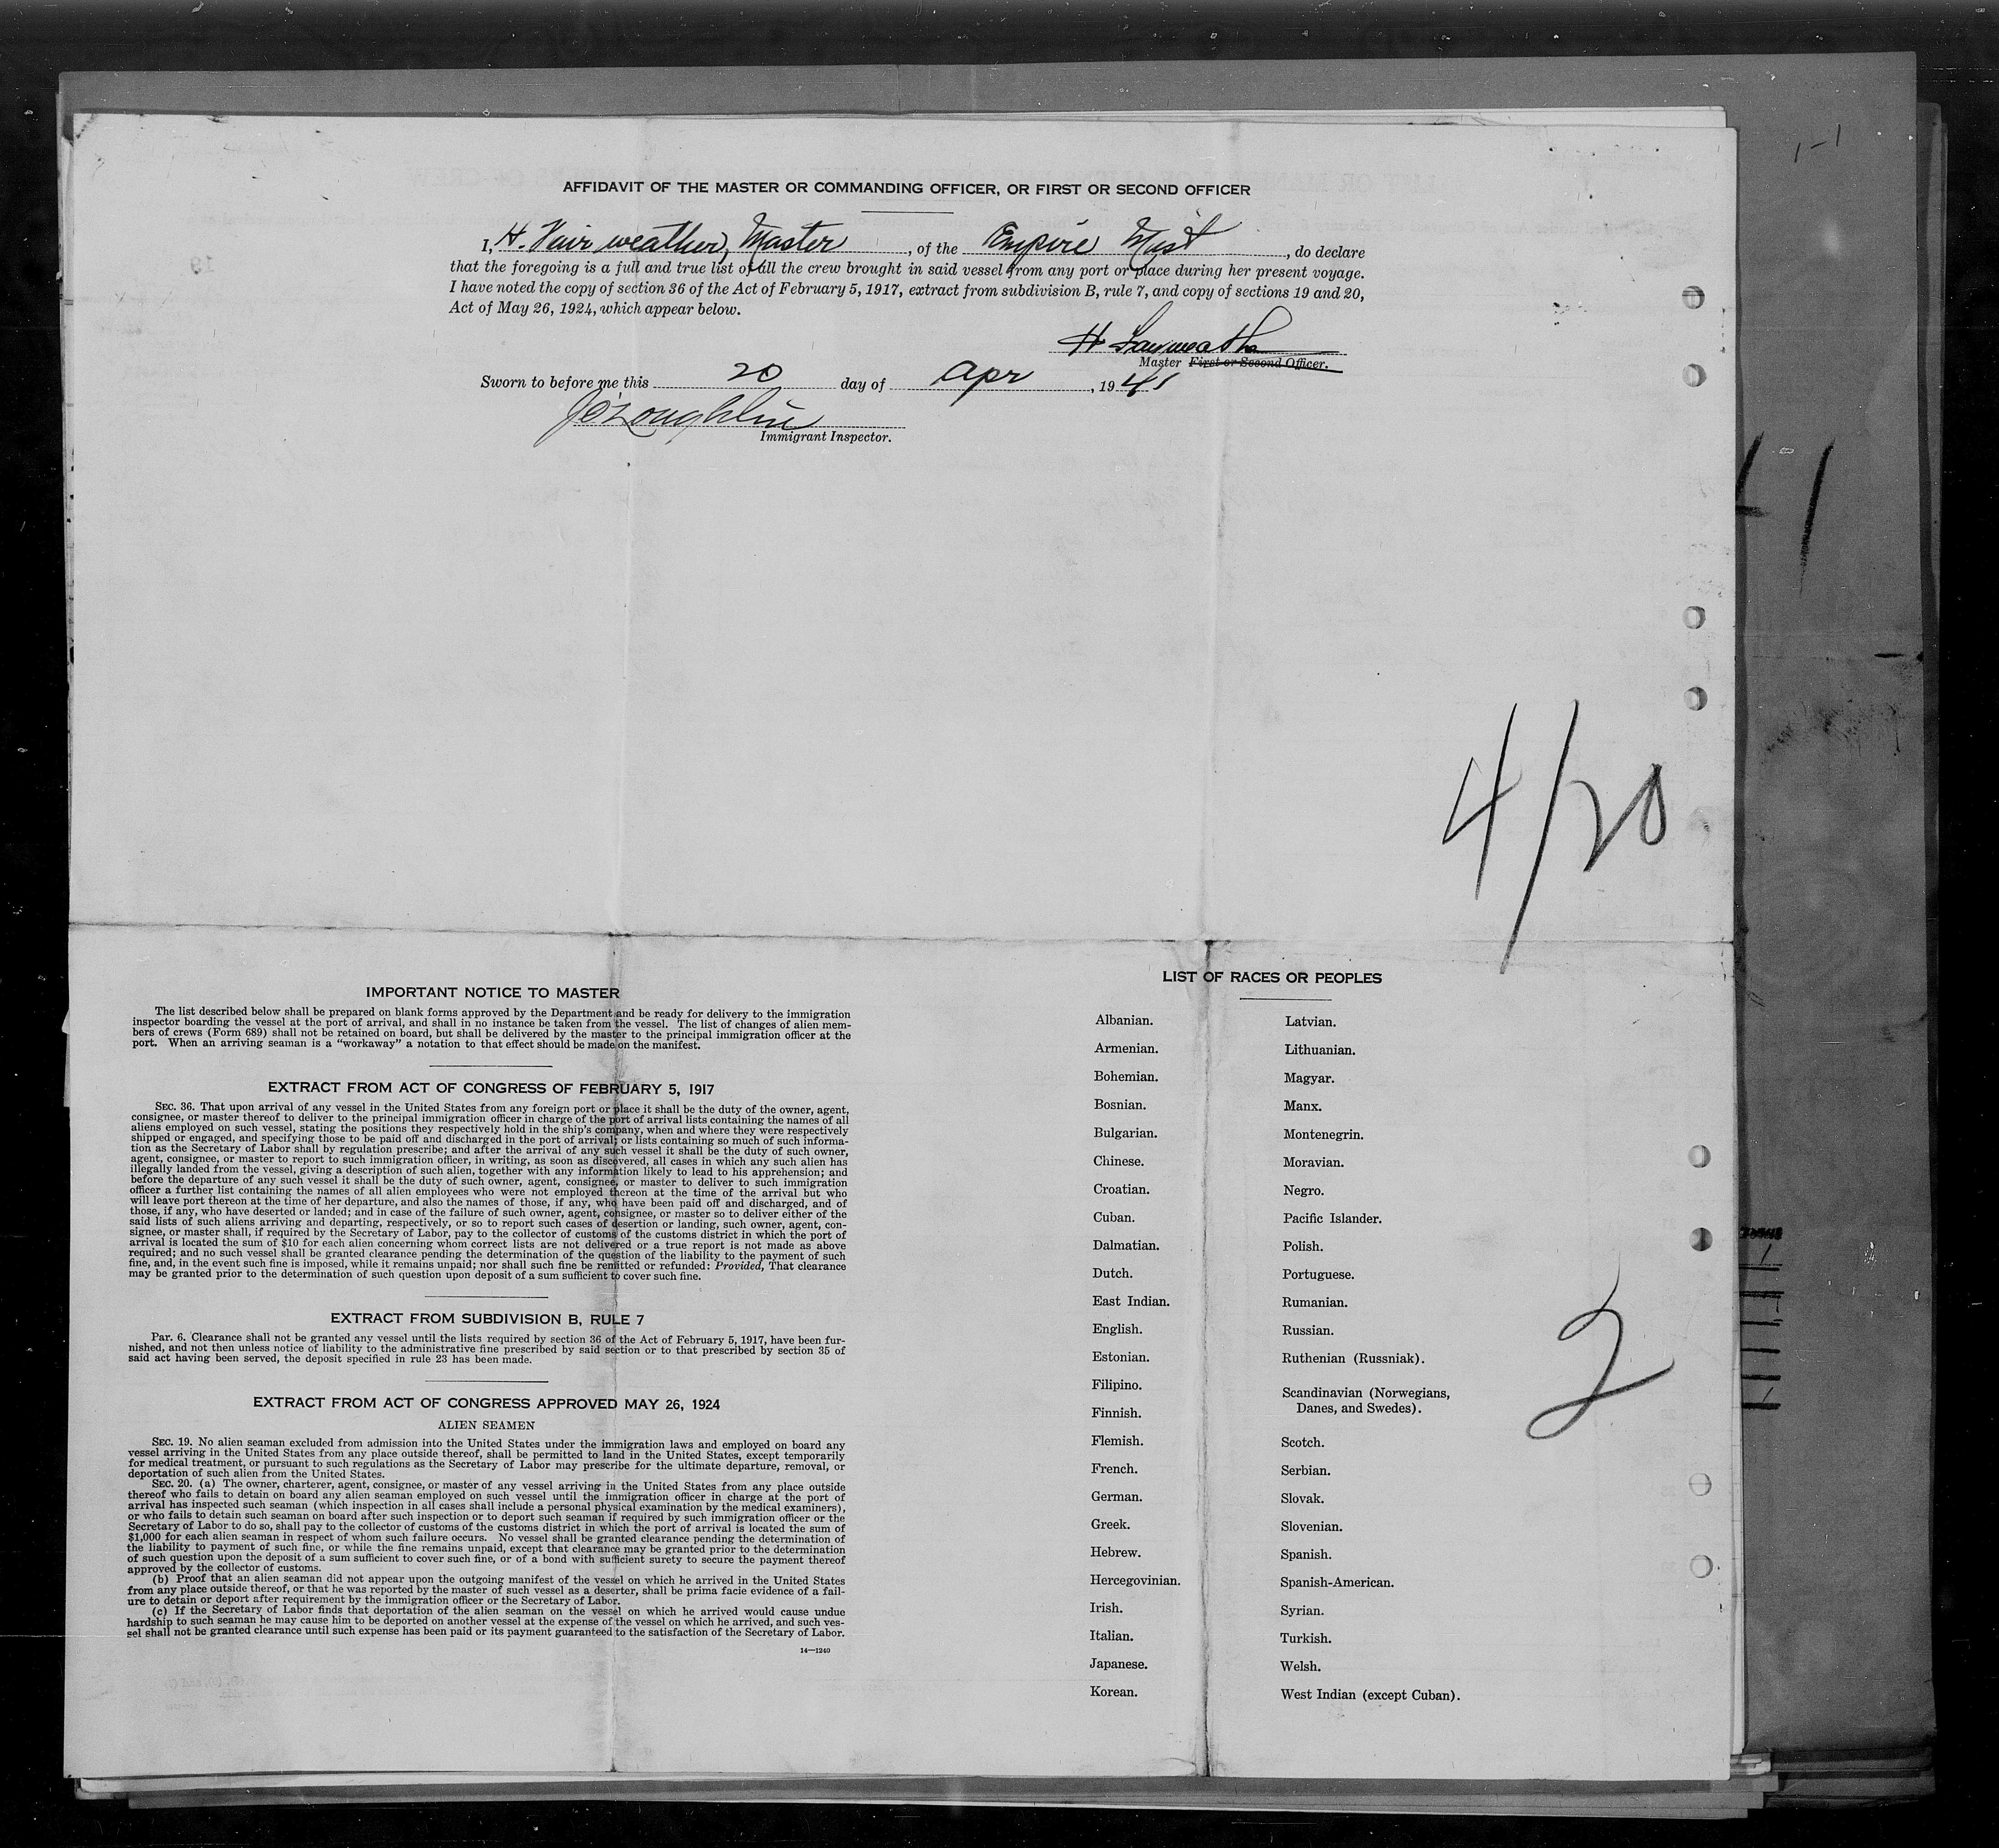 AFFIDAVIT OF THE MASTER OR COMMANDING OFFICER, OR FIRST OR SECOND OFFICER
I, H. Fairweather, Master, of the Empire Mist, do declare
that the foregoing is a full and true list of all the crew brought in said vessel from any port or place during her present voyage.
I have noted the copy of section 36 of the Act of February 5, 1917, extract from subdivision B, rule 7, and copy of sections 19 and 20,
Act of May 26, 1924, which appear below.
H Fairweather
Master First or Second Officer.
Sworn to before me this 20 day of Apr, 1941
J O'Loughlin
Immigrant Inspector.
4/20
IMPORTANT NOTICE TO MASTER
The list described below shall be prepared on blank forms approved by the Department and be ready for delivery to the immigration
inspector boarding the vessel at the port of arrival, and shall in no instance be taken from the vessel. The list of changes of alien mem-
bers of crews (Form 689) shall not be retained on board, but shall be delivered by the master to the principal immigration officer at the
port. When an arriving seaman is a "workaway" a notation to that effect should be made on the manifest.
EXTRACT FROM ACT OF CONGRESS OF FEBRUARY 5, 1917
SEC. 36. That upon arrival of any vessel in the United States from any foreign port or place it shall be the duty of the owner, agent,
consignee, or master thereof to deliver to the principal immigration officer in charge of the port of arrival lists containing the names of all
aliens employed on such vessel, stating the positions they respectively hold in the ship's company, when and where they were respectively
shipped or engaged, and specifying those to be paid off and discharged in the port of arrival; or lists containing so much of such informa-
tion as the Secretary of Labor shall by regulation prescribe; and after the arrival of any such vessel it shall be the duty of such owner,
agent, consignee, or master to report to such immigration officer, in writing, as soon as discovered, all cases in which any such alien has
illegally landed from the vessel, giving a description of such alien, together with any information likely to lead to his apprehension; and
before the departure of any such vessel it shall be the duty of such owner, agent, consignee, or master to deliver to such immigration
officer a further list containing the names of all alien employees who were not employed thereon at the time of the arrival but who
will leave port thereon at the time of her departure, and also the names of those, if any, who have been paid off and discharged, and of
those, if any, who have deserted or landed; and in case of the failure of such owner, agent, consignee, or master so to deliver either of the
said lists of such aliens arriving and departing, respectively, or so to report such cases of desertion or landing, such owner, agent, con-
signee, or master shall, if required by the Secretary of Labor, pay to the collector of customs of the customs district in which the port of
arrival is located the sum of $10 for each alien concerning whom correct lists are not delivered or a true report is not made as above
required; and no such vessel shall be granted clearance pending the determination of the question of the liability to the payment of such
fine, and, in the event such fine is imposed, while it remains unpaid; nor shall such fine be remitted or refunded: Provided, That clearance
may be granted prior to the determination of such question upon deposit of a sum sufficient to cover such fine.
EXTRACT FROM SUBDIVISION B, RULE 7
Par. 6. Clearance shall not be granted any vessel until the lists required by section 36 of the Act of February 5, 1917, have been fur-
nished, and not then unless notice of liability to the administrative fine prescribed by said section or to that prescribed by section 35 of
said act having been served, the deposit specified in rule 23 has been made.
EXTRACT FROM ACT OF CONGRESS APPROVED MAY 26, 1924
ALIEN SEAMEN
SEC. 19. No alien seaman excluded from admission into the United States under the immigration laws and employed on board any
vessel arriving in the United States from any place outside thereof, shall be permitted to land in the United States, except temporarily
for medical treatment, or pursuant to such regulations as the Secretary of Labor may prescribe for the ultimate departure, removal, or
deportation of such alien from the United States.
SEC. 20. (a) The owner, charterer, agent, consignee, or master of any vessel arriving in the United States from any place outside
thereof who fails to detain on board any alien seaman employed on such vessel until the immigration officer in charge at the port of
arrival has inspected such seaman (which inspection in all cases shall include a personal physical examination by the medical examiners),
or who fails to detain such seaman on board after such inspection or to deport such seaman if required by such immigration officer or the
Secretary of Labor to do so, shall pay to the collector of customs of the customs district in which the port of arrival is located the sum of
$1,000 for each alien seaman in respect of whom such failure occurs. No vessel shall be granted clearance pending the determination of
the liability to payment of such fine, or while the fine remains unpaid, except that clearance may be granted prior to the determination
of such question upon the deposit of a sum sufficient to cover such fine, or of a bond with sufficient surety to secure the payment thereof
approved by the collector of customs.
(b) Proof that an alien seaman did not appear upon the outgoing manifest of the vessel on which he arrived in the United States
from any place outside thereof, or that he was reported by the master of such vessel as a deserter, shall be prima facie evidence of a fail-
ure to detain or deport after requirement by the immigration officer or the Secretary of Labor.
(c) If the Secretary of Labor finds that deportation of the alien seaman on the vessel on which he arrived would cause undue
hardship to such seaman he may cause him to be deported on another vessel at the expense of the vessel on which he arrived, and such ves-
sel shall not be granted clearance until such expense has been paid or its payment guaranteed to the satisfaction of the Secretary of Labor.
14—1240
LIST OF RACES OR PEOPLES
Albanian.
Armenian.
Bohemian.
Bosnian.
Bulgarian.
Chinese.
Croatian.
Cuban.
Dalmatian.
Dutch.
East Indian.
English.
Estonian.
Filipino.
Finnish.
Flemish.
French.
German.
Greek.
Hebrew.
Hercegovinian.
Irish.
Italian.
Japanese.
Korean.
Latvian.
Lithuanian.
Magyar.
Manx.
Montenegrin.
Moravian.
Negro.
Pacific Islander.
Polish.
Portuguese.
Rumanian.
Russian.
Ruthenian (Russniak).
Scandinavian (Norwegians,
Danes, and Swedes).
Scotch.
Serbian.
Slovak.
Slovenian.
Spanish.
Spanish-American.
Syrian.
Turkish.
Welsh.
West Indian (except Cuban).
2